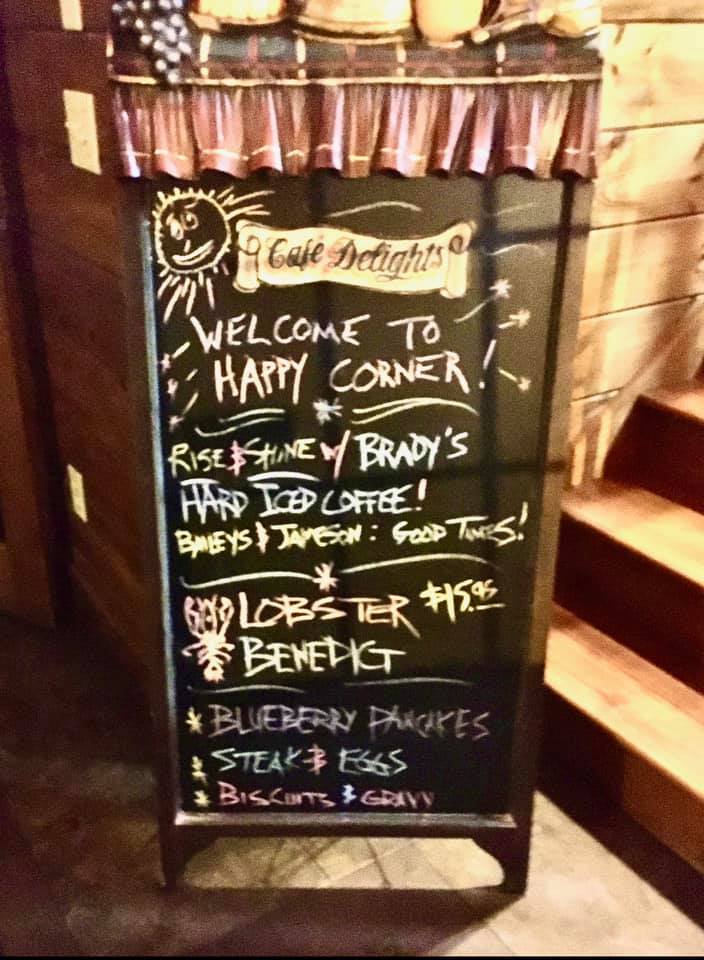 Café Delights
WELCOME TO
HAPPY CORNER!
RISE & SHINE W/ BRADY'S
HARD ICED COFFEE!
BAILEYS & JAMESON: GOOD TIMES!
LOBSTER $15.95
BENEDICT
* BLUEBERRY PANCAKES
* STEAK & EGGS
* BISCUITS & GRAVY